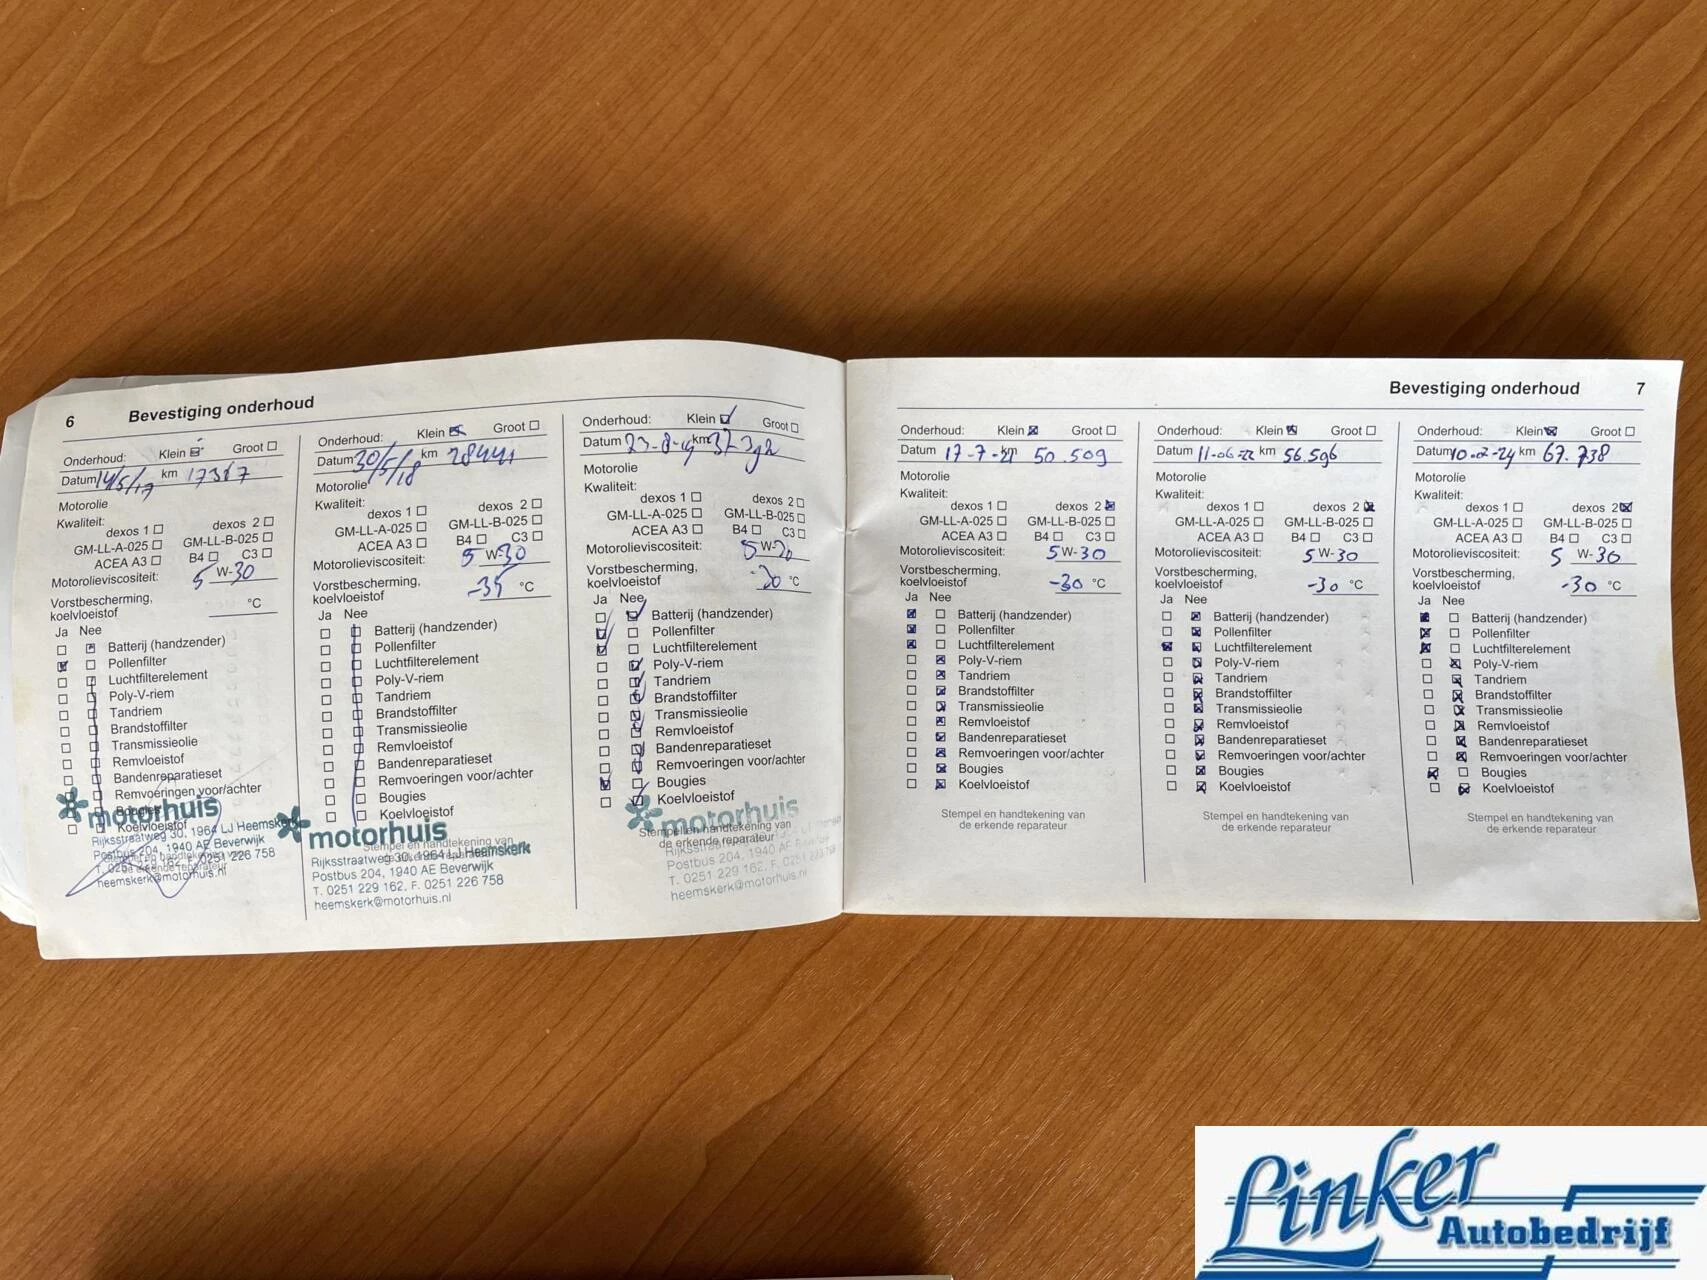 6 Bevestiging onderhoud
Onderhoud: Klein Groot
Datum 14/5/17 km 17367
Motorolie
Kwaliteit:
dexos 1 dexos 2
GM-LL-A-025 GM-LL-B-025
ACEA A3 B4 C3
Motorolieviscositeit: 5 W-30
Vorstbescherming,
koelvloeistof °C
Ja Nee
Batterij (handzender)
Pollenfilter
Luchtfilterelement
Poly-V-riem
Tandriem
Brandstoffilter
Transmissieolie
Remvloeistof
Bandenreparatieset
Remvoeringen voor/achter
Bougies
Koelvloeistof
motorhuis
Rijksstraatweg 30, 1964 LJ Heemskerk
Postbus 204, 1940 AE Beverwijk
T. 0251 229 162 F. 0251 226 758
heemskerk@motorhuis.nl
Onderhoud: Klein Groot
Datum 30/5/18 km 28441
Motorolie
Kwaliteit:
dexos 1 dexos 2
GM-LL-A-025 GM-LL-B-025
ACEA A3 B4 C3
Motorolieviscositeit: 5 W-30
Vorstbescherming,
koelvloeistof -35 °C
Ja Nee
Batterij (handzender)
Pollenfilter
Luchtfilterelement
Poly-V-riem
Tandriem
Brandstoffilter
Transmissieolie
Remvloeistof
Bandenreparatieset
Remvoeringen voor/achter
Bougies
Koelvloeistof
Stempel en handtekening van
de erkende reparateur
motorhuis
Rijksstraatweg 30, 1964 LJ Heemskerk
Postbus 204, 1940 AE Beverwijk
T. 0251 229 162, F. 0251 226 758
heemskerk@motorhuis.nl
Onderhoud: Klein Groot
Datum 23-8-19 km
Motorolie
Kwaliteit:
dexos 1 dexos 2
GM-LL-A-025 GM-LL-B-025
ACEA A3 B4 C3
Motorolieviscositeit: 5 W-
Vorstbescherming,
koelvloeistof °C
Ja Nee
Batterij (handzender)
Pollenfilter
Luchtfilterelement
Poly-V-riem
Tandriem
Brandstoffilter
Transmissieolie
Remvloeistof
Bandenreparatieset
Remvoeringen voor/achter
Bougies
Koelvloeistof
Stempel en handtekening van
de erkende reparateur
motorhuis
Postbus 204, 1940 AE
T. 0251 229 162, F. 0251
heemskerk@motorhuis.nl
Bevestiging onderhoud 7
Onderhoud: Klein Groot
Datum 17-7-21 km 50.509
Motorolie
Kwaliteit:
dexos 1 dexos 2
GM-LL-A-025 GM-LL-B-025
ACEA A3 B4 C3
Motorolieviscositeit: 5 W-30
Vorstbescherming,
koelvloeistof -30 °C
Ja Nee
Batterij (handzender)
Pollenfilter
Luchtfilterelement
Poly-V-riem
Tandriem
Brandstoffilter
Transmissieolie
Remvloeistof
Bandenreparatieset
Remvoeringen voor/achter
Bougies
Koelvloeistof
Stempel en handtekening van
de erkende reparateur
Onderhoud: Klein Groot
Datum 11-06-22 km 56.596
Motorolie
Kwaliteit:
dexos 1 dexos 2
GM-LL-A-025 GM-LL-B-025
ACEA A3 B4 C3
Motorolieviscositeit: 5 W-30
Vorstbescherming,
koelvloeistof -30 °C
Ja Nee
Batterij (handzender)
Pollenfilter
Luchtfilterelement
Poly-V-riem
Tandriem
Brandstoffilter
Transmissieolie
Remvloeistof
Bandenreparatieset
Remvoeringen voor/achter
Bougies
Koelvloeistof
Stempel en handtekening van
de erkende reparateur
Onderhoud: Klein Groot
Datum 10-02-24 km 67.738
Motorolie
Kwaliteit:
dexos 1 dexos 2
GM-LL-A-025 GM-LL-B-025
ACEA A3 B4 C3
Motorolieviscositeit: 5 W-30
Vorstbescherming,
koelvloeistof -30 °C
Ja Nee
Batterij (handzender)
Pollenfilter
Luchtfilterelement
Poly-V-riem
Tandriem
Brandstoffilter
Transmissieolie
Remvloeistof
Bandenreparatieset
Remvoeringen voor/achter
Bougies
Koelvloeistof
Stempel en handtekening van
de erkende reparateur
Linker
Autobedrijf